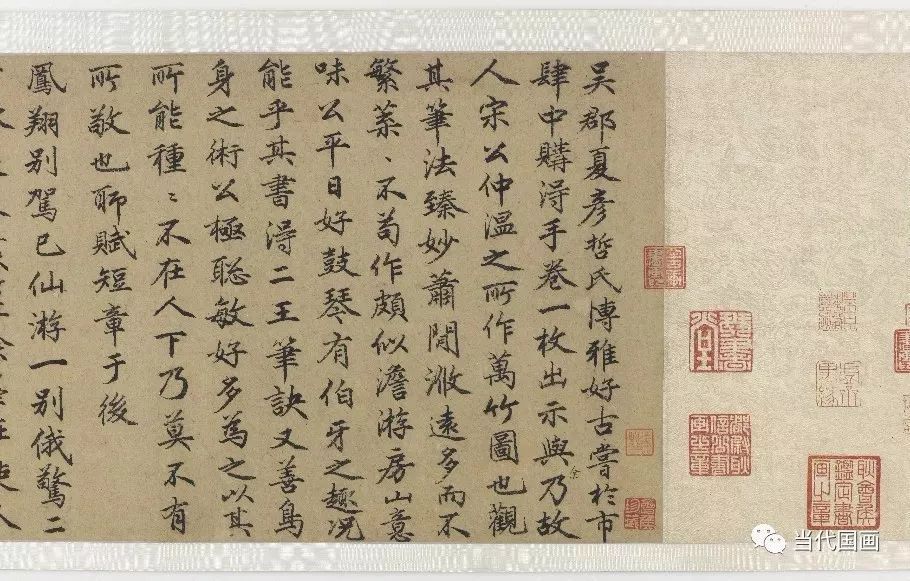 吳郡夏彥哲氏博雅好古嘗於市
肆中購得手卷一枚出示與余乃故
人宋公仲溫之所作萬竹圖也觀
其筆法臻妙蕭閒澂遠多而不
繁葉、不苟作頗似澹游房山意
味公平日好鼓琴有伯牙之趣況
能乎其書得二王筆訣又善鳥
身之術公極聡敏好多為之以其
所能種〻不在人下乃莫不有
所敬也聊賦短章于後
鳳翔别駕已仙游一别俄驚二
琴書堂
都尉耿信公書畫之章
耿會侯鑑定書畫之章
当代国画